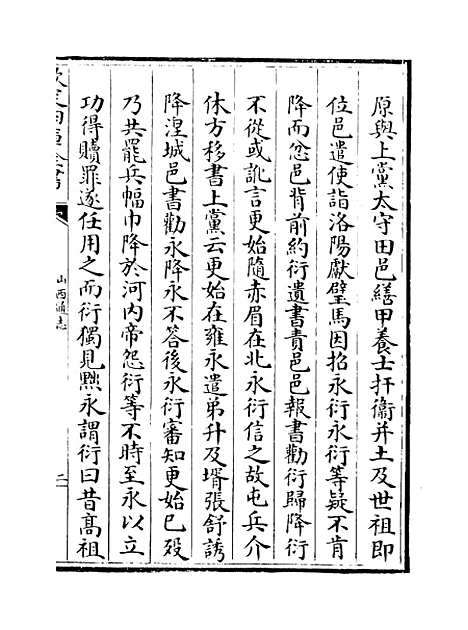 原與上黨太守田邑繕甲養士扞衞并土及世祖即
位邑遣使詣洛陽獻璧馬因招永衍永衍等疑不肯
降而忿邑背前約衍遺書責邑邑報書勸衍歸降衍
不從或訛言更始隨赤眉在北永衍信之故屯兵介
休方移書上黨云更始在雍永遣弟升及壻張舒誘
降湼城邑書勸永降永不答後永衍審知更始已殁
乃共罷兵幅巾降於河内帝怨衍等不時至永以立
功得贖罪遂任用之而衍獨見黜永謂衍曰昔髙祖
山西通志
二